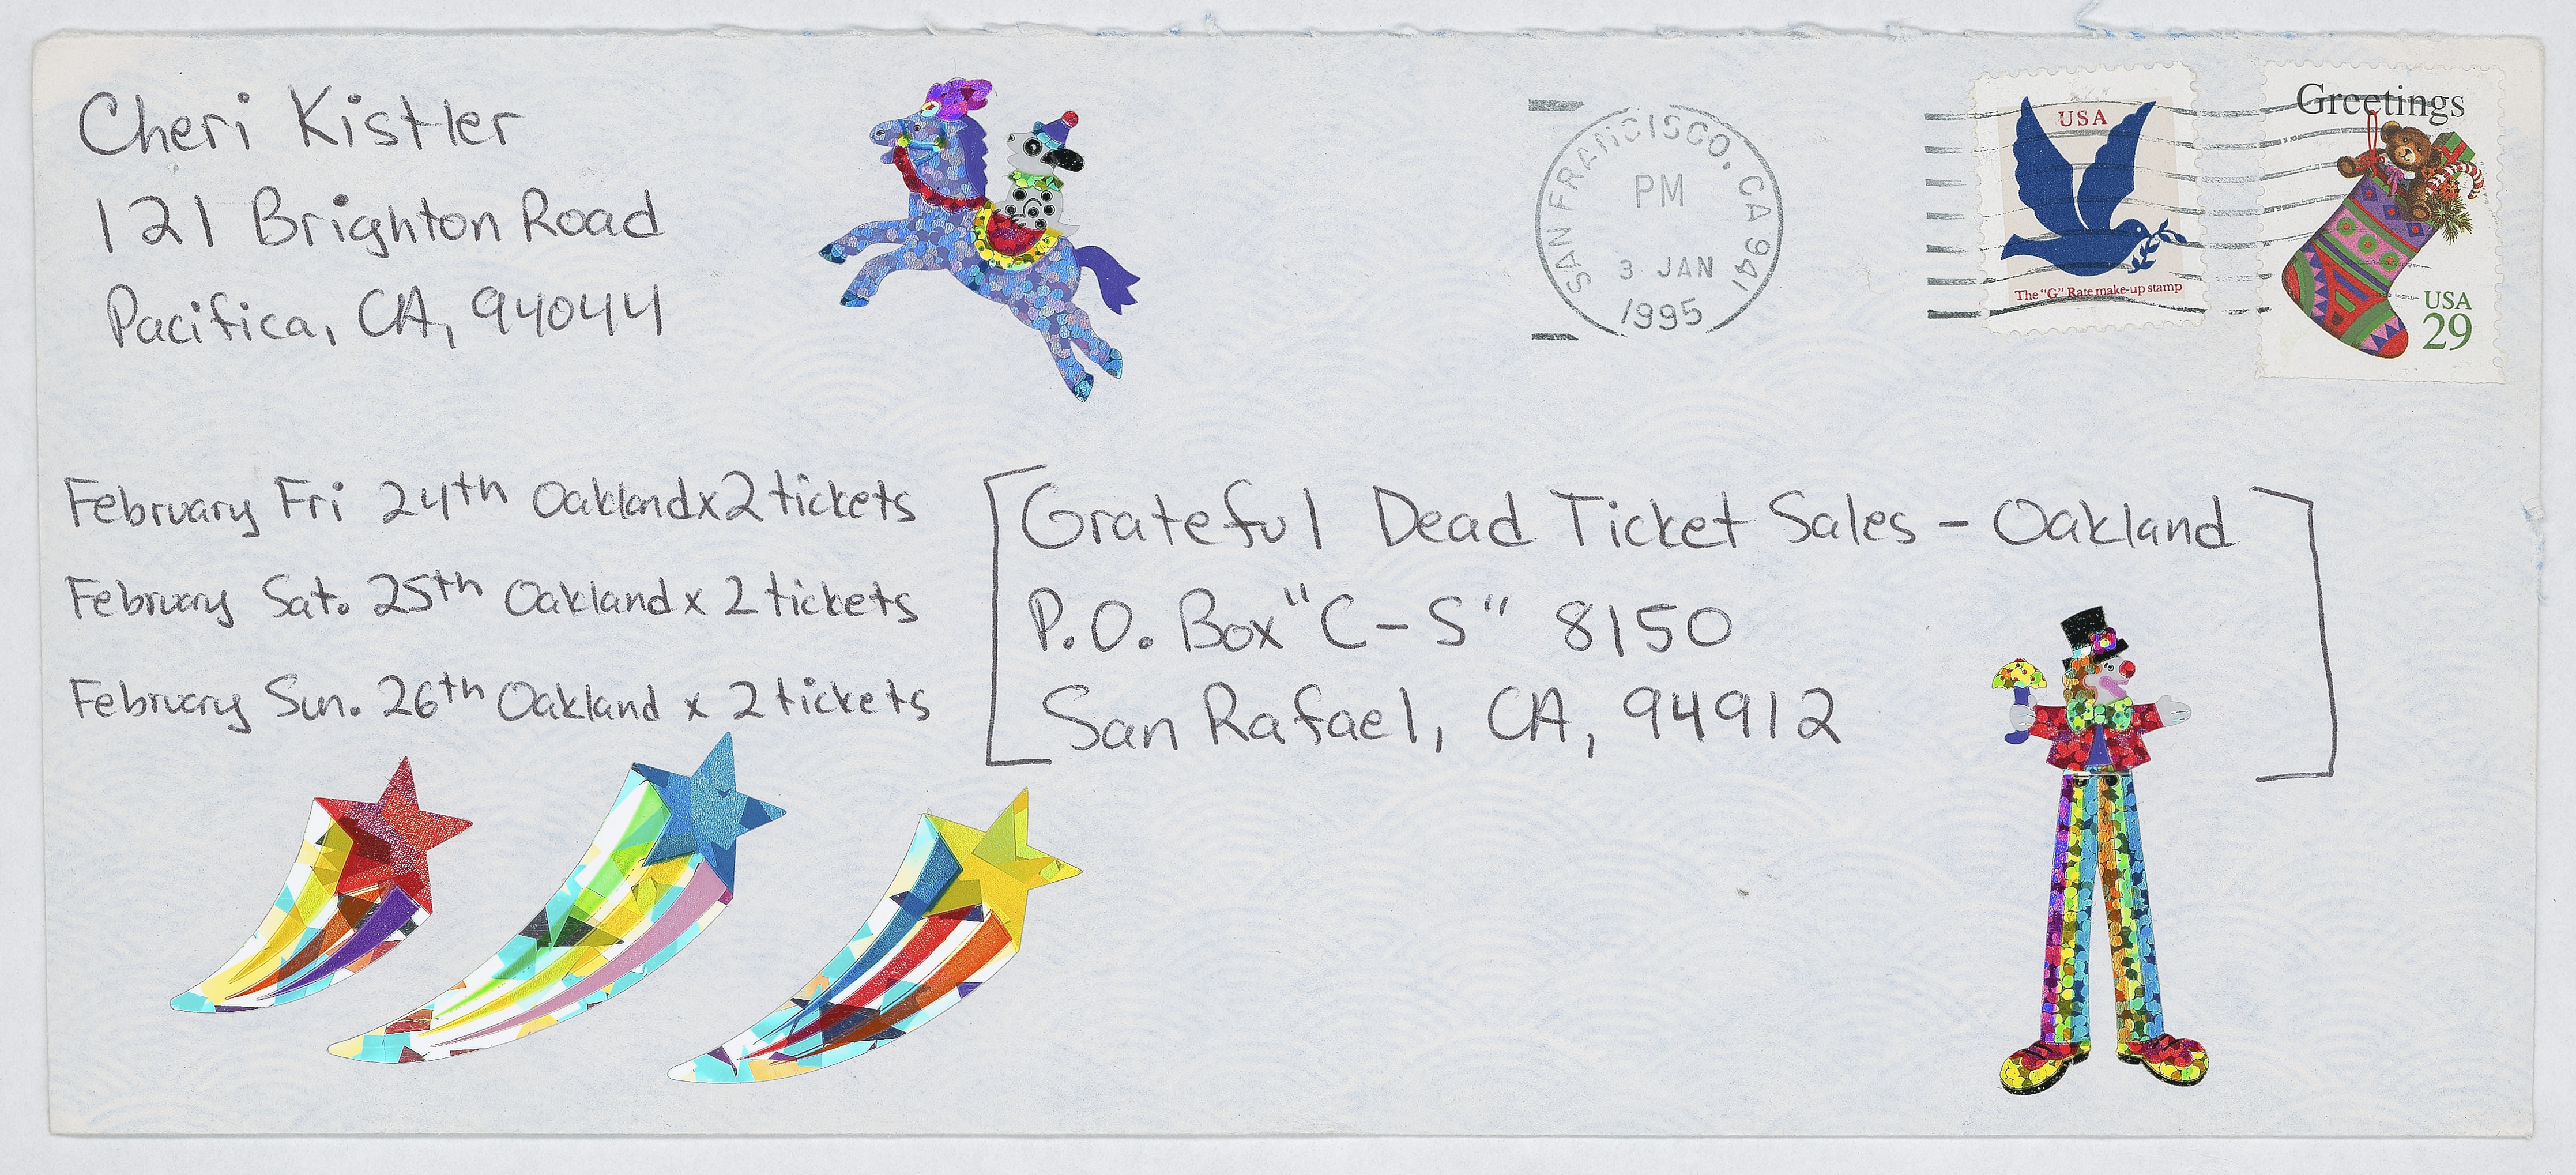 Cheri Kistler
121 Brighton Road
Pacifica, CA, 94044
SAN FRANCISCO, CA 941
PM
3 JAN
1995
USA
The "G" Rate make-up stamp
Greetings
USA
29
February Fri 24th Oakland x 2 tickets
February Sat. 25th Oakland x 2 tickets
February Sun. 26th Oakland x 2 tickets
Grateful Dead Ticket Sales - Oakland
P.O. Box "C-S" 8150
San Rafael, CA, 94912